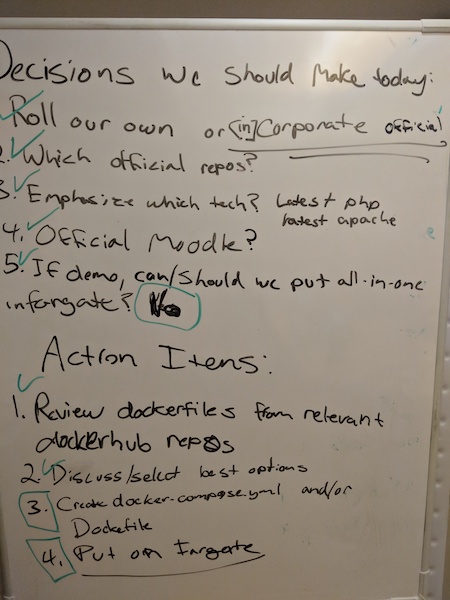 Decisions we should make today:
Roll our own or [in]Corporate official
2. Which official repos?
3. Emphasize which tech? Latest php
latest apache
4. Official Moodle?
5. If demo, can/should we put all-in-one
in fargate? No
Action Itens:
1. Review dockerfiles from relevant
dockerhub repos
2. Discuss/select best options
3. Create docker-compose.yml and/or
Dockefile
4. Put on Fargate